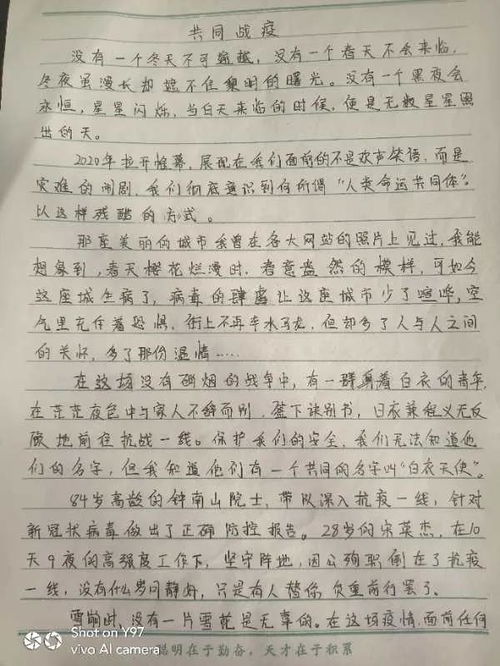 共同战疫
没有一个冬天不可逾越，没有一个春天不会来临，
冬夜虽漫长却遮不住黎明的曙光。没有一个黑夜会
永恒，星星闪烁，当白天来临的时候，便是无数星星照
出的天。
2020年拉开帷幕，展现在我们面前的不是欢声笑语，而是
灾难的闹剧，我们彻底意识到何所谓"人类命运共同体"。
以这样残酷的方式。
那座美丽的城市我曾在各大网站的照片上见过，我能
想象到，春天樱花烂漫时，春意盎然的模样，可如今
这座城生病了，病毒的肆虐让这座城市少了喧哗，空
气里充斥着恐惧，街上不再车水马龙，但却多了人与人之间
的关怀，多了那份温情……
在这场没有硝烟的战争中，有一群身着白衣的青年，
在茫茫夜色中与家人不辞而别，签下诀别书，日夜兼程义无反
顾地前往抗战一线。保护我们的安全，我们无法知道他
们的名字，但我知道他们有一个共同的名字叫"白衣天使"。
84岁高龄的钟南山院士，带队深入抗疫一线，针对
新冠状病毒做出了正确防控报告。28岁的宋英杰，在10
天9夜的高强度工作下，坚守阵地，因公殉职，倒在了抗疫
一线，没有什么岁月静好，只是有人替你负重前行罢了。
雪崩时，没有一片雪花是无辜的。在这场疫情面前任何
聪明在于勤奋，天才在于积累
Shot on Y97
vivo AI camera